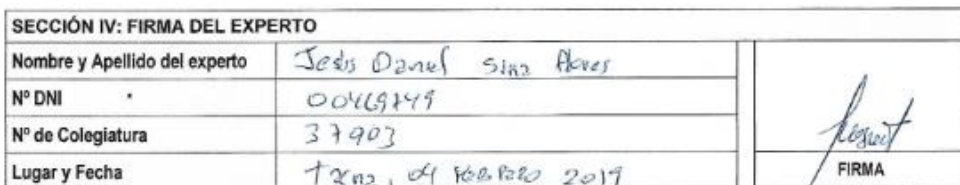 SECCIÓN IV: FIRMA DEL EXPERTO
Nombre y Apellido del experto Jesús Daniel
Nº DNI
Nº de Colegiatura 37903
Lugar y Fecha Tacna, 04 FEBRERO 2019
FIRMA